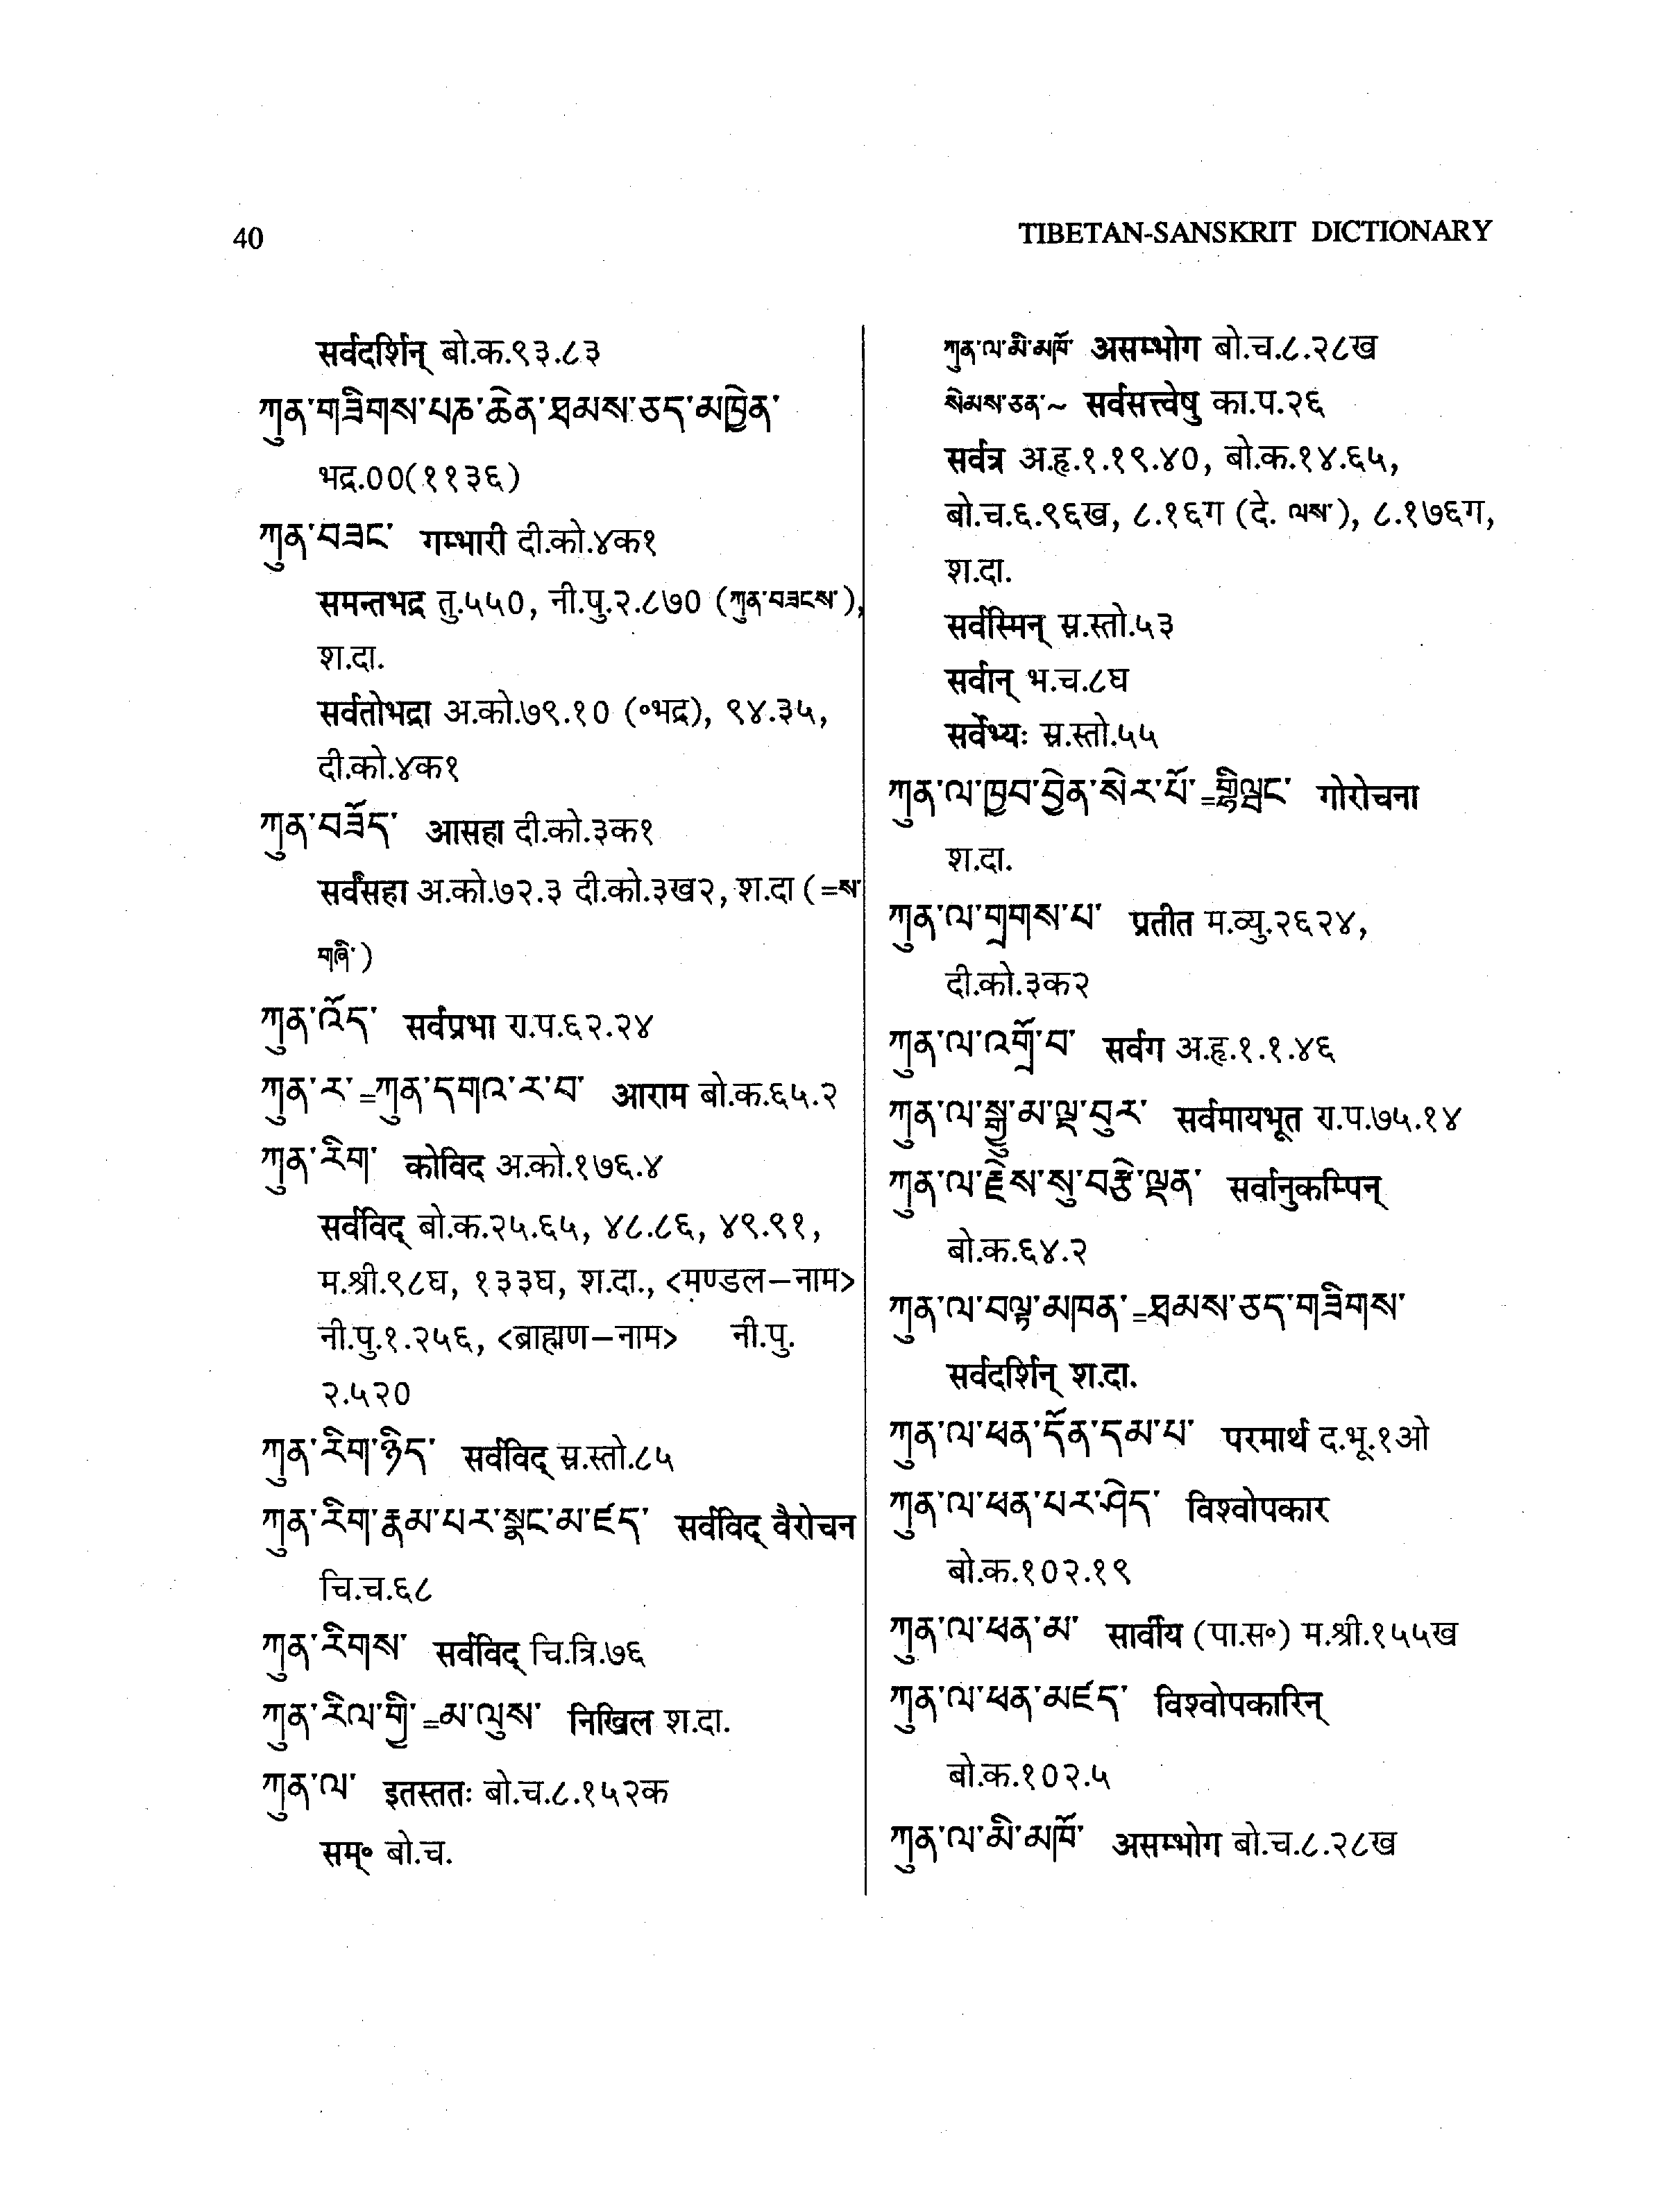 40
TIBETAN-SANSKRIT DICTIONARY
सर्वदर्शिन् बो.क.९३.८३
ཀུན་གཟིགས་པཎ་ཆེན་ཐམས་ཅད་མཁྱེན་
भद्र.00(११३६)
ཀུན་བཟང་ गम्भारी दी.को.४क१
समन्तभद्र तु.५५0, नी.पु.२.८७0 (ཀུན་བཟངས་),
श.दा.
सर्वतोभद्रा अ.को.७९.१0 (॰भद्र), ९४.३५,
दी.को.४क१
ཀུན་བཟོད་ आसहा दी.को.३क१
सर्वंसहा अ.को.७२.३ दी.को.३ख२, श.दा (=ས་
གཞི་)
ཀུན་འོད་ सर्वप्रभा रा.प.६२.२४
ཀུན་ར་=ཀུན་དགའ་ར་བ་ आराम बो.क.६५.२
ཀུན་རིག་ कोविद अ.को.१७६.४
सर्वविद् बो.क.२५.६५, ४८.८६, ४९.९१,
म.श्री.९८घ, १३३घ, श.दा., <मण्डल–नाम>
नी.पु.१.२५६, <ब्राह्मण–नाम> नी.पु.
२.५२0
ཀུན་རིག་ཉིད་ सर्वविद् स्र.स्तो.८५
ཀུན་རིག་རྣམ་པར་སྣང་མ་ཛད་ सर्वविद् वैरोचन
चि.च.६८
ཀུན་རིགས་ सर्वविद् चि.त्रि.७६
ཀུན་རིལ་གྱི་=མ་ལུས་ निखिल श.दा.
ཀུན་ལ་ इतस्ततः बो.च.८.१५२क
सम्॰ बो.च.
ཀུན་ལ་མི་མཁོ་ असम्भोग बो.च.८.२८ख
སེམས་ཅན་~ सर्वसत्त्वेषु का.प.२६
सर्वत्र अ.हृ.१.१९.४0, बो.क.१४.६५,
बो.च.६.९६ख, ८.१६ग (दे. ལས་), ८.१७६ग,
श.दा.
सर्वस्मिन् स्र.स्तो.५३
सर्वान् भ.च.८घ
सर्वेभ्यः स्र.स्तो.५५
ཀུན་ལ་ཁྱབ་བྱེན་སེར་པོ་= गोरोचना
श.दा.
ཀུན་ལ་གྲགས་པ་ प्रतीत म.व्यु.२६२४,
दी.को.३क२
ཀུན་ལ་འགྲོ་བ་ सर्वग अ.हृ.१.१.४६
ཀུན་ལ་སྒྱུ་མ་ལྡ་བུར་ सर्वमायभूत रा.प.७५.१४
ཀུན་ལ་རྗེས་སུ་བརྩེ་ལྡན་ सर्वानुकम्पिन्
बो.क.६४.२
ཀུན་ལ་བལྟ་མཁན་=ཐམས་ཅད་གཟིགས་
सर्वदर्शिन् श.दा.
ཀུན་ལ་ཕན་དོན་དམ་པ་ परमार्थ द.भू.१ओ
ཀུན་ལ་ཕན་པར་ཤེད་ विश्वोपकार
बो.क.१0२.१९
ཀུན་ལ་ཕན་མ་ सार्वीय (पा.स॰) म.श्री.१५५ख
ཀུན་ལ་ཕན་མཛད་ विश्वोपकारिन्
बो.क.१0२.५
ཀུན་ལ་མི་མཁོ་ असम्भोग बो.च.८.२८ख